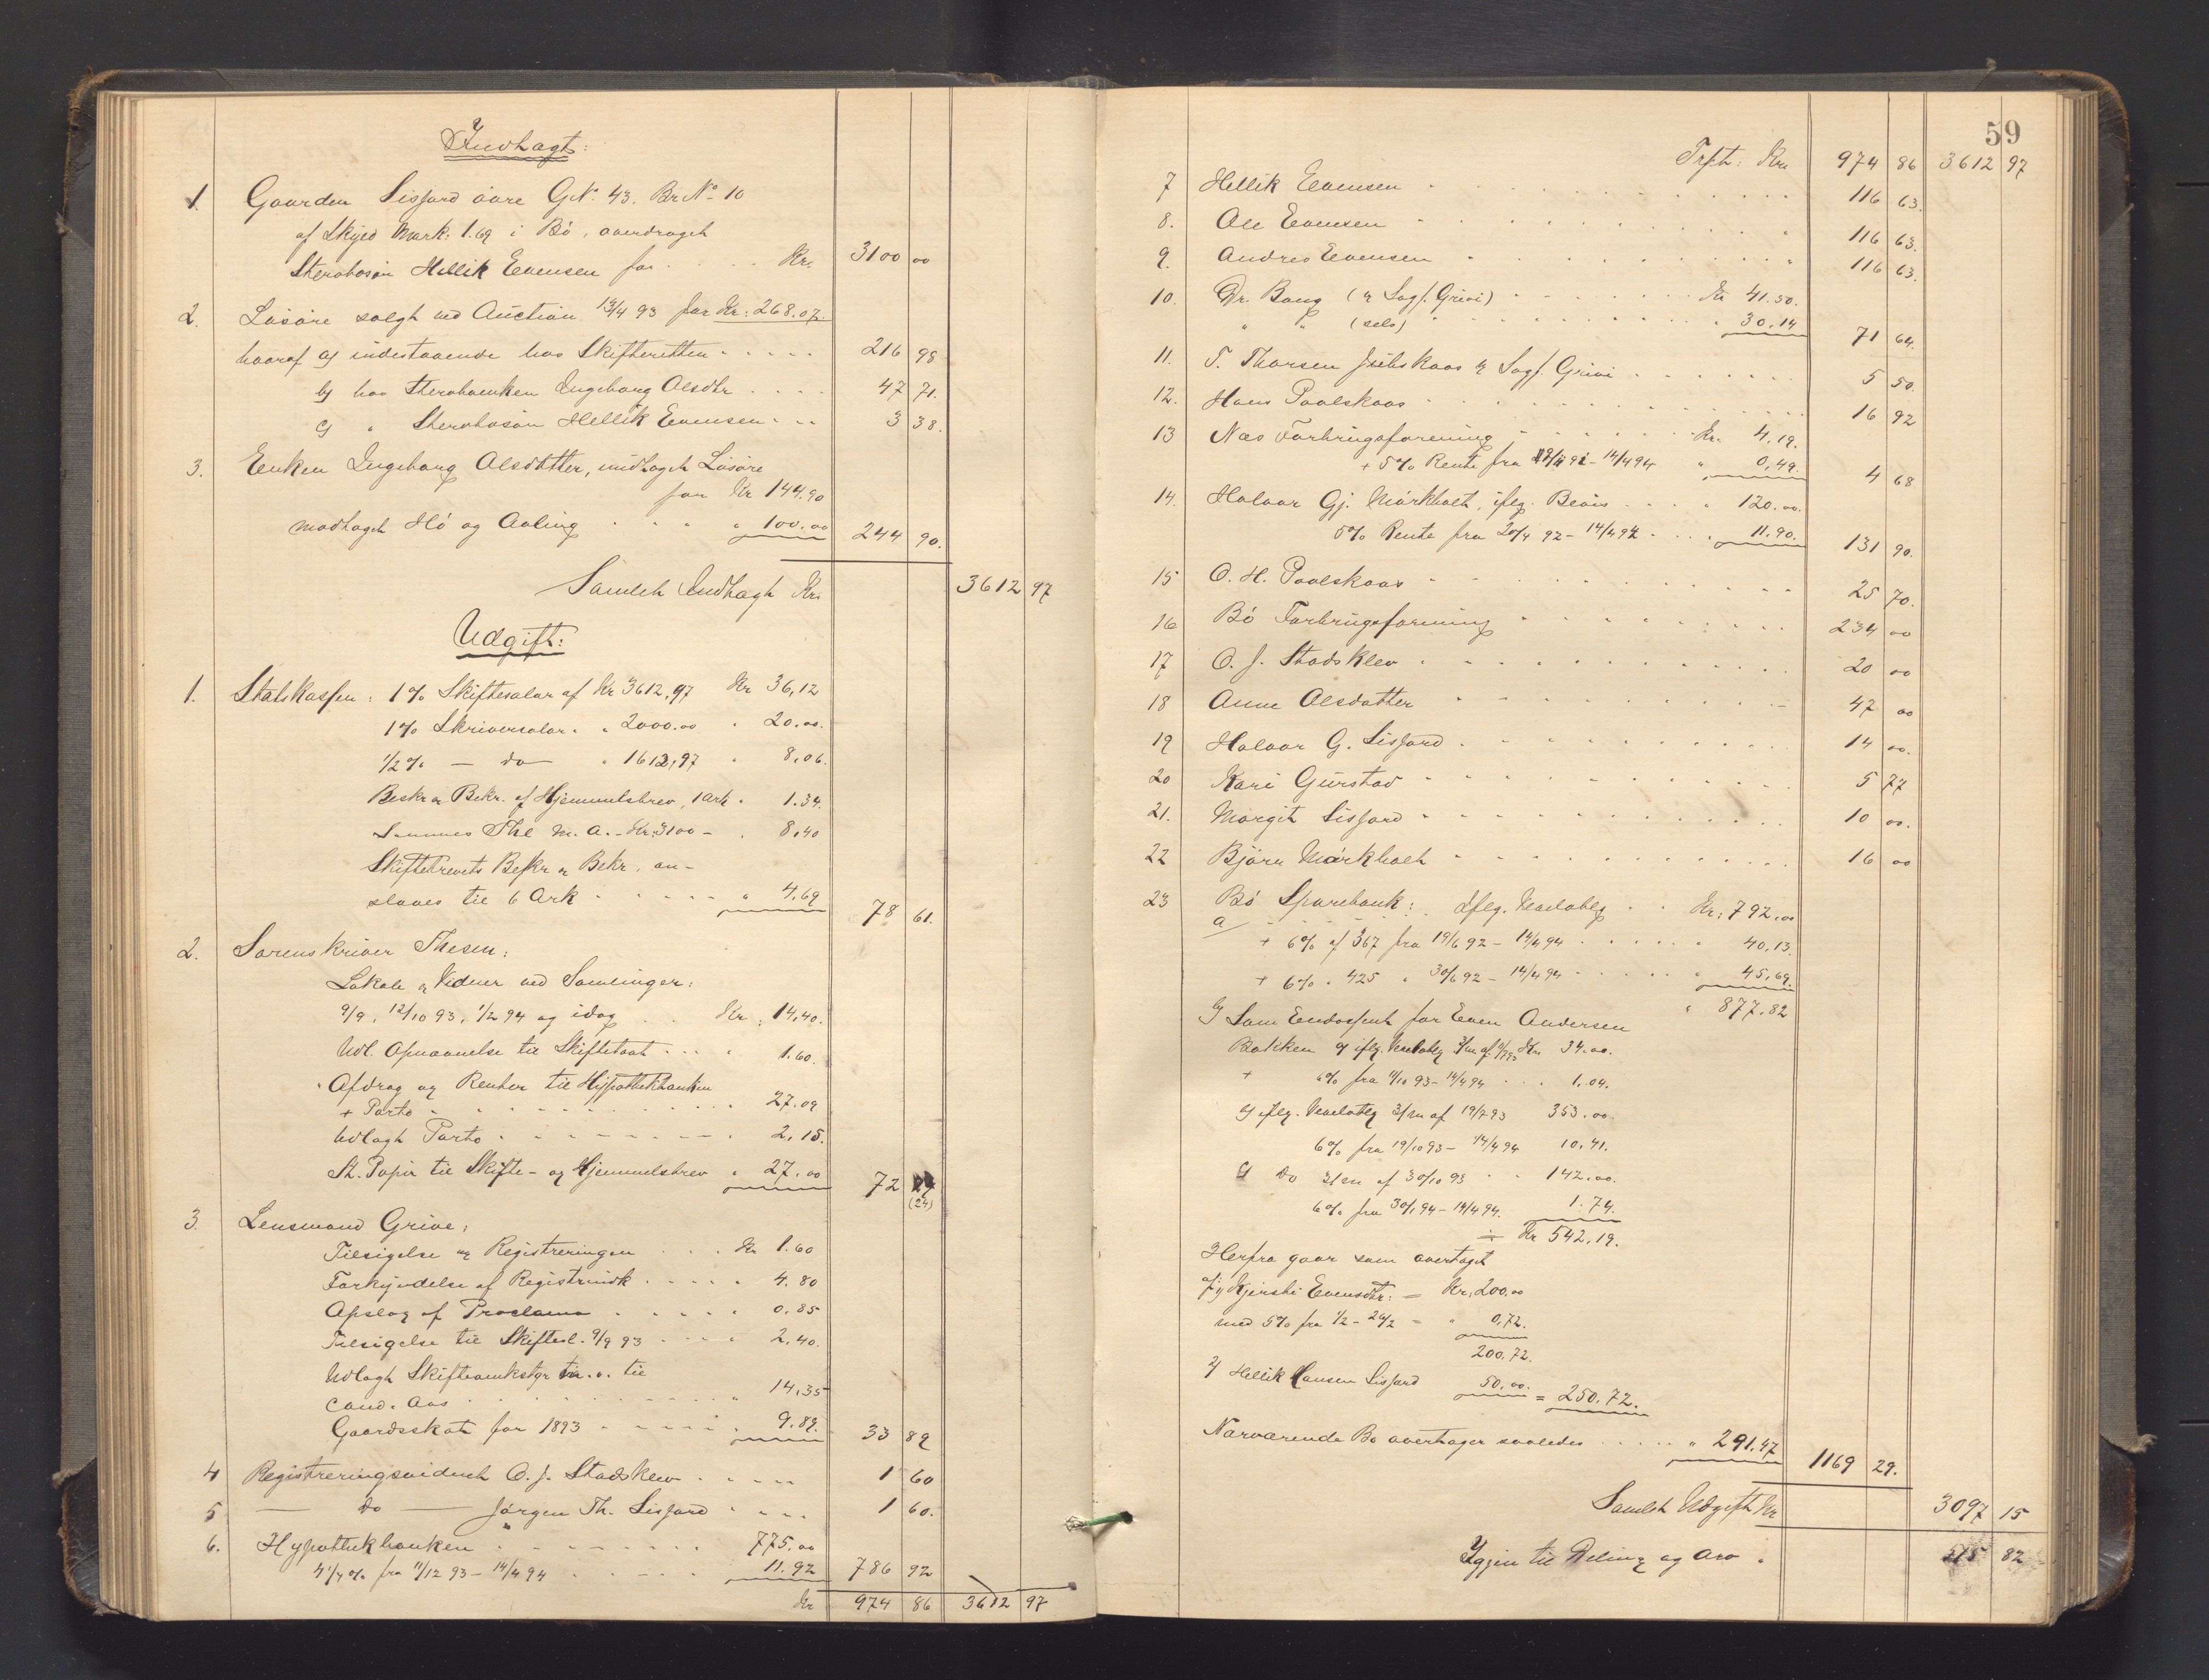 Indtægt:
1. Gaarden Sisjord øvre G.N. 43. Br.No 10
af Skyld Mark: 1.69 i Bö, overdraget
Stervbosön Hellik Evensen for Kr. 3100 00
2. Lösöre solgt ved Auction 13/4 93 for Kr: 268.07.
hvoraf a) indestaaende hos Skifteretten 216 98
b) hos Stervbenken Ingeborg Olsdtr 47 71.
c) " Stervbosön Hellik Evensen 3 38.
3. Enken Ingeborg Olsdatter, udtaget Lösöre
for Kr 144.90
modtaget Hö og Avling " 100.00 244 90.
Samlet Indtægt Kr. 3612 97
Udgift:
1. Statskassen: 1% Skiftesalær af Kr 3612,97 Kr 36,12
1% Skriversalær " 2000.00 " 20.00.
1/2% — do — " 1612,97 " 8,06.
Beskr. & Bekr. af Hjemmelsbrev, 1 ark " 1.34.
Sammes Thl. m. a. - Kr. 3100 - " 8,40
Skiftebrevets Beskr & Bekr. an-
slaaes til 6 Ark " 4,69 78 61.
2. Sorenskriver Thesen:
Lokale & Vidner ved Samlinger:
9/9, 12/10 93, 1/2 94 og idag Kr. 14,40.
Udl. Opnævnelse til Skiftetaxt " 1.60.
Afdrag og Renter til Hypothekbanken
+ Porto 27.09
Udlagt Porto 2,15.
St. Papir til Skifte- og Hjemmelsbrev " 27.00 72
(24)
3. Lensmand Grive:
Tilsigelse og Registreringen Kr 1.60
Forkyndelse af Registrindk. " 4.80
Opslag af Proclama " 0,85
Tilsigelse til Skiftesl. 9/9 93 " 2,40.
Udlagt til
Cand. Aas " 14,35
Gaardsskat for 1893 9.89. 33 89
4 Registreringsvidnet O. J. Stadskleiv 1 60
5 — do — Jörgen Th. Sisjord 1 60.
6. Hypothekbanken 775.00
4 1/4% fra 11/12 93 - 14/4 94 11.92 786 92
Kr 974 86 3612 97
59
Trspt: Kr. 974 86 3612 97
7 Hellik Evensen 116 63.
8. Ole Evensen 116 63.
9. Andres Evensen 116 63.
10. Dr. Bang (v. Sagf. Grivi) Kr 41.50.
" " (selv) " 30.14 71 64.
11. T. Thorsen v. Sagf. Grivi 5 50.
12. Hans Paalskaas 16 92
13 Næs Forbrugsforening Kr. 4,19.
+ 5% Rente fra 14/4 94 " 0,49. 4 68
14. Halvor Gj. Mörkholt, iflg. Bevis " 120.00.
5% Rente fra 20/4 92 - 14/4 94 11.90. 131 90.
15 O. H. Paalskaas 25 70.
16 Bö Forbrugsforening 234 00
17 O. J. Stadskleiv 20 00
18 Anne Olsdatter 47 00
19 Halvor G. Sisjord 14 00.
20 Kari Gurstad 5 77
21. Margit Sisjord 10 00.
22 Björn Mörkholt 16 00
23 Bö Sparebank: Iflg. Vexelobлg Kr. 792.00
a/ + 6% af 367 fra 19/6 92 - 14/4 94 " 40,13.
+ 6% " 425 " 30/6 92 - 14/4 94 " 45,69.
" 877.82
b/ Som Endossent for Even Andersen
Bakken a) iflg. Vexeloblg 3/m af Kr 34.00.
+ 6% fra 11/10 93 - 14/4 94 1.04.
b) iflg. Vexeloblg 3/m af 19/7 93 353.00.
6% fra 19/10 93 - 14/4 94 10,41.
c) Do 3/m af 30/10 93 142.00.
6% fra 30/1 94 - 14/4 94. 1.74.
÷ Kr 542,19.
Herfra gaar som overtaget
af 1) Kjersti Evensdtr: = Kr. 200.00
med 5% fra 1/2 - 26/2 = " 0,72.
200.72.
2) Hellik Hansen Sisjord 50,00. = 250.72.
Nærværende Bo overtager saaledes " 291.47 1169 29.
Samlet Udgift Kr 3097 15
Igjen til Deling og Arv " 515 82